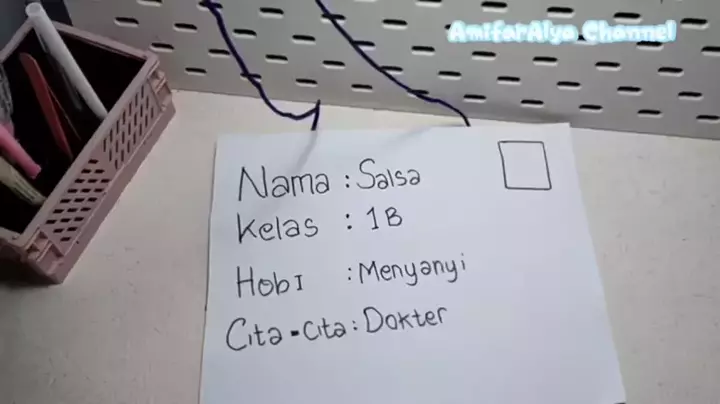 AmifarAlya Channel
Nama : Salsa
Kelas : 1B
Hobi : Menyanyi
Cita-Cita : Dokter